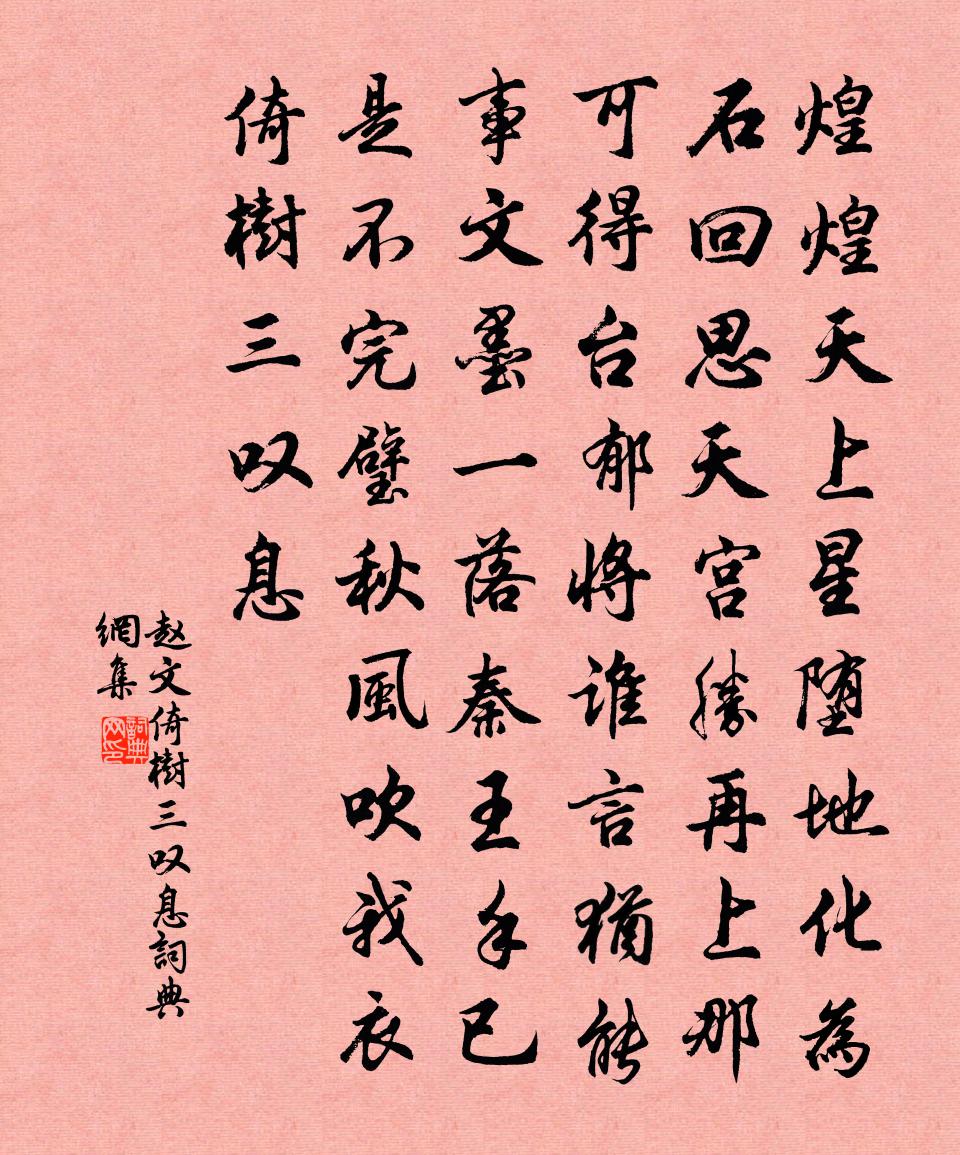 煌煌天上星堕地化為
石回思天宮勝再上那
可得台郁將誰言猶能
事文墨一落秦王手已
是不完璧秋風吹我衣
倚樹三叹息
赵文倚樹三叹息詞典
網集
詞典网印